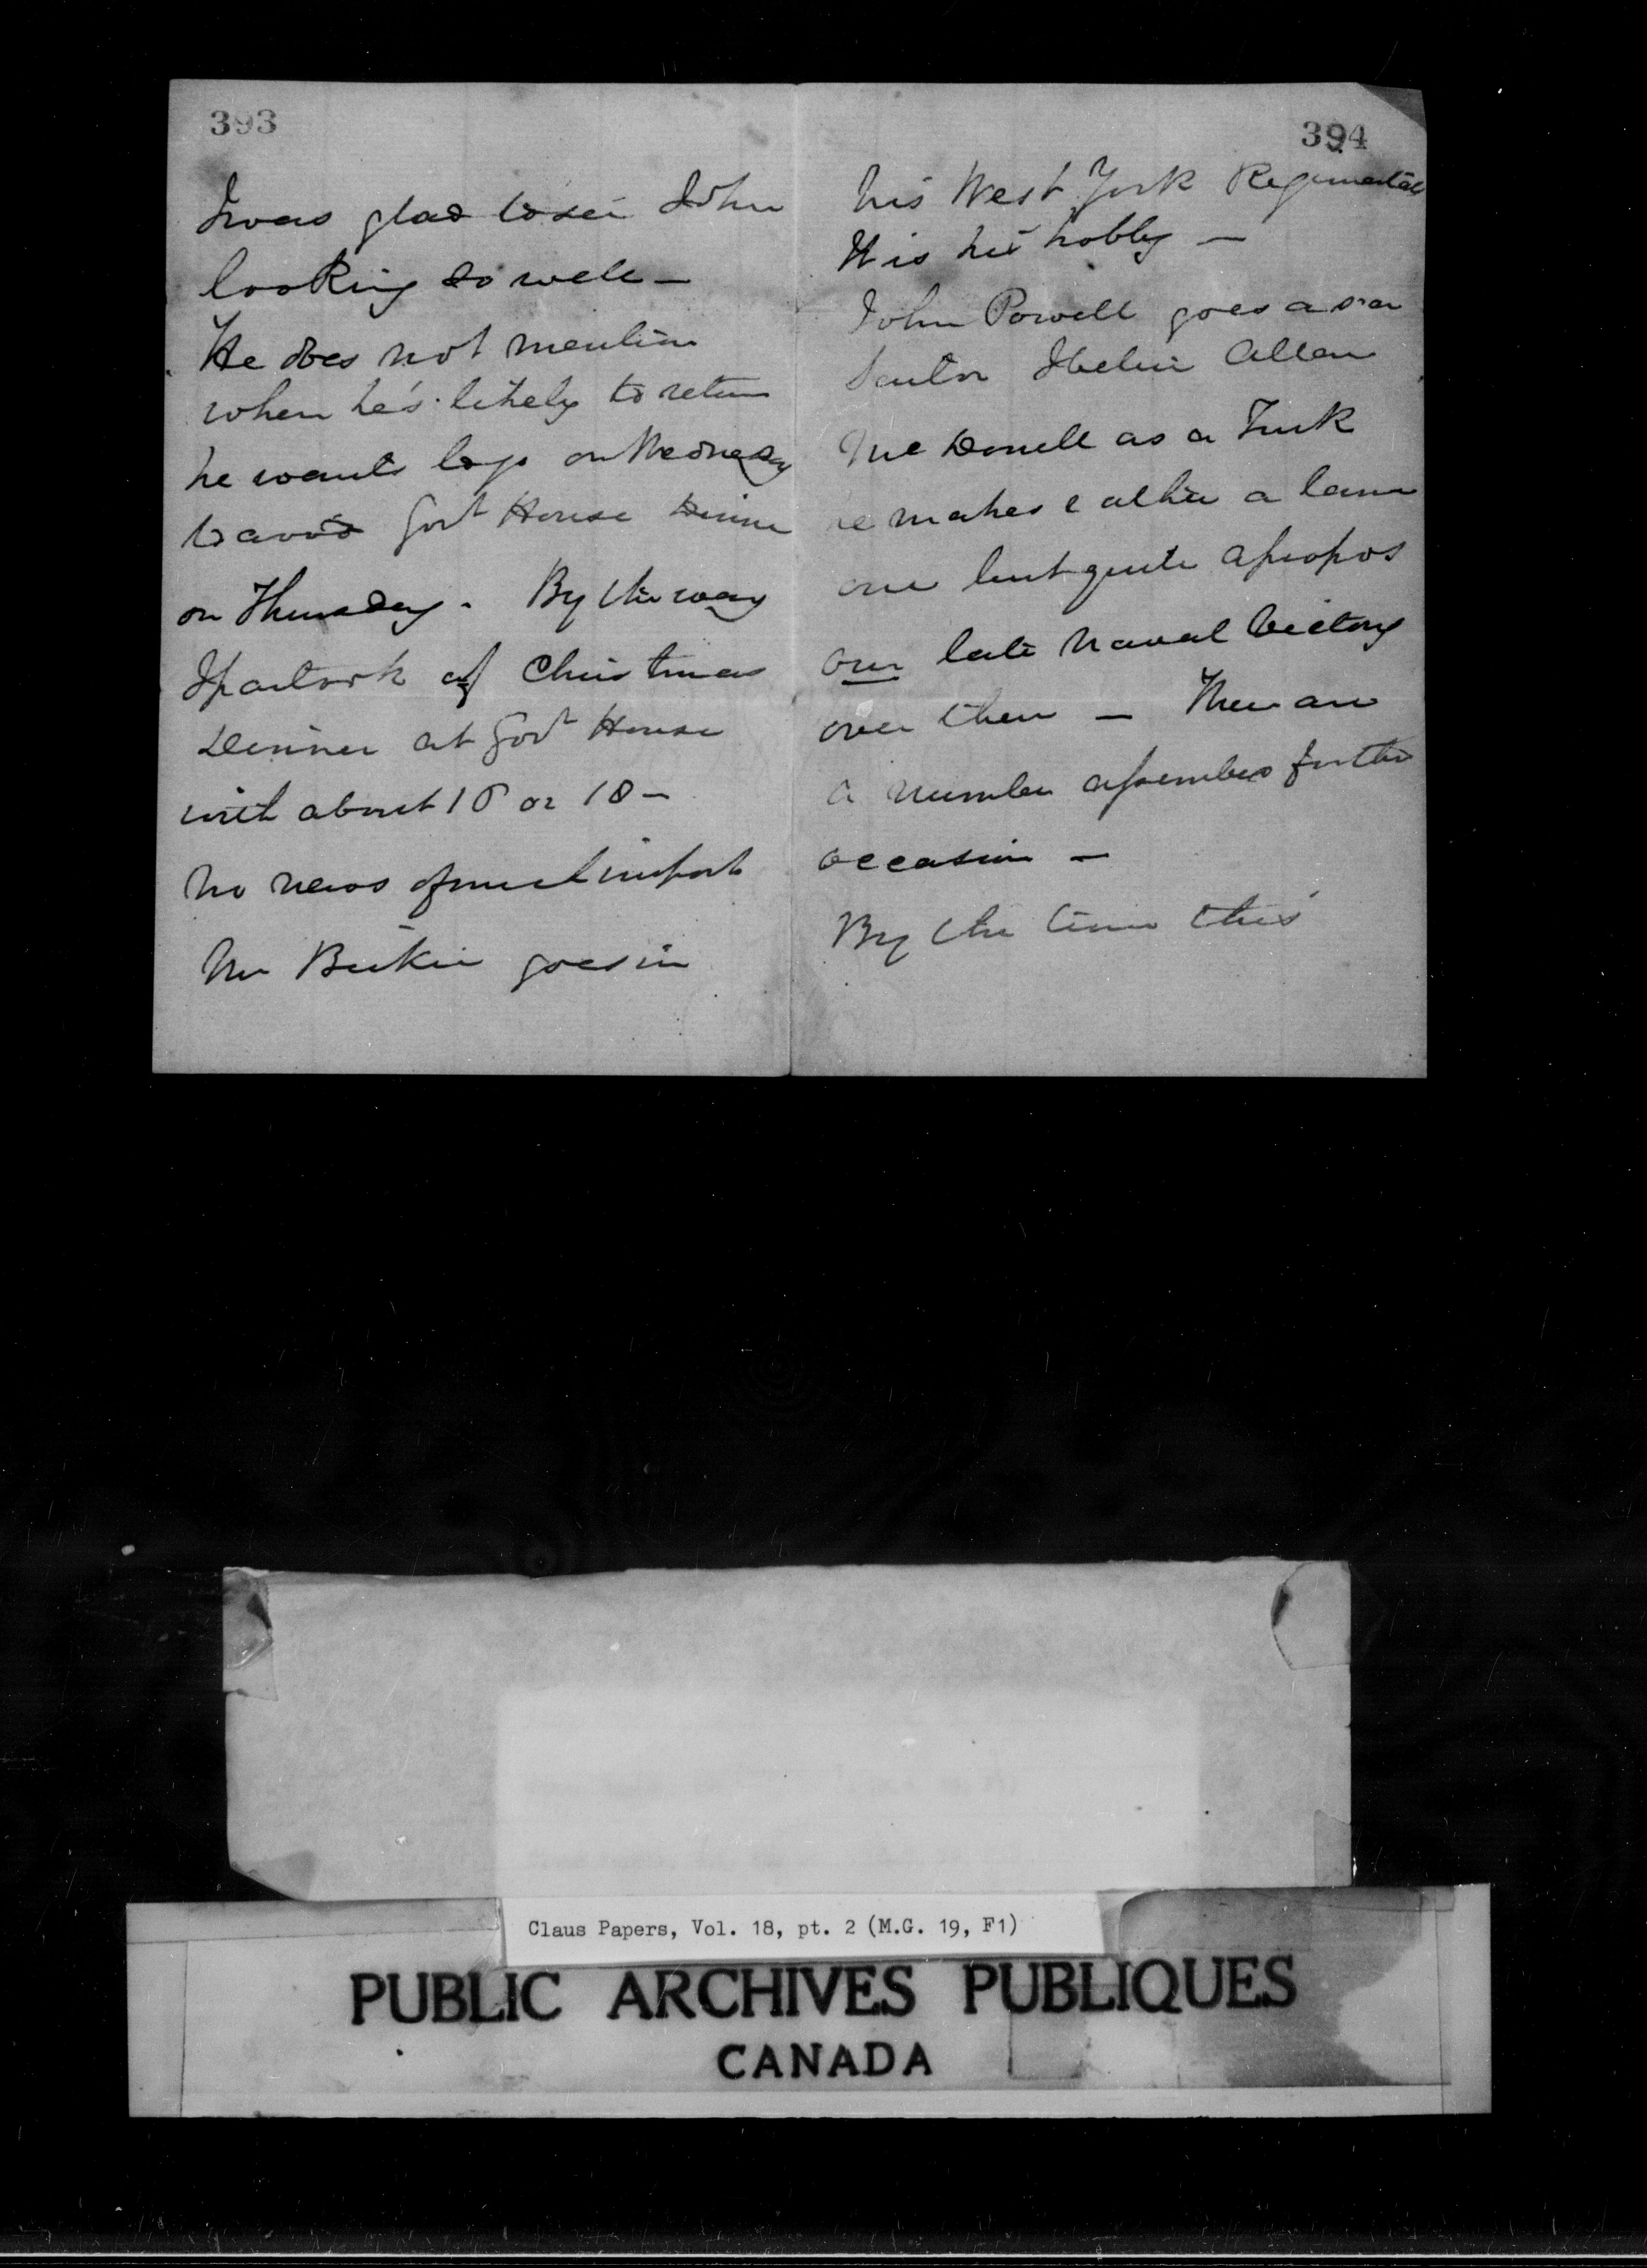 393
I was glad to see John
looking so well —
He does not mention
when he's likely to return
he wants to go on Wednesday
to avoid Govt House Dinner
on Thursday. By the way
I partook of Christmas
Dinner at Govt House
with about 16 or 18 —
No news of much import
Mr goes in
394
his West York Regimentals
It is his hobby —
John Powell goes as a
Sailor Allan
McDonell as a Turk
he makes rather a lame
one but quite apropos
our late Naval Victory
over them — There are
a number assembled for the
occasion —
By the time this
Claus Papers, Vol. 18, pt. 2 (M.G. 19, F1)
PUBLIC ARCHIVES PUBLIQUES
CANADA